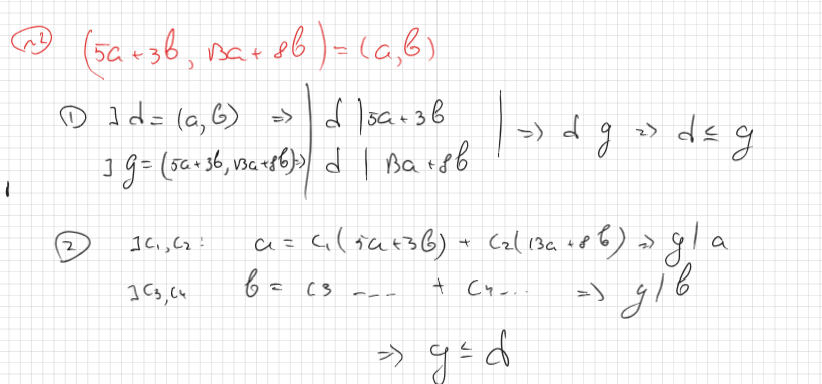 ~2 (5a+3b, 13a+8b)=(a,b)
① ] d=(a,b) => | d |5a+3b | => d g => d≤g
] g=(5a+3b,13a+8b)=> | d | 13a+8b
② ]c₁,c₂: a = c₁(5a+3b) + c₂(13a+8b) => g|a
]c₃,c₄ b = c₃ --- + c₄... => g/b
=> g≤d